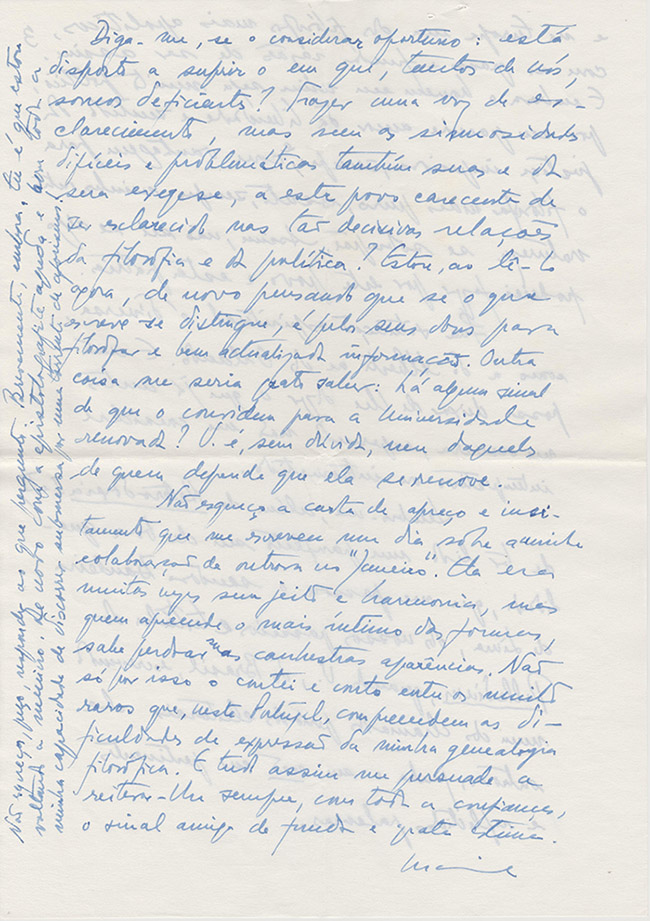 Diga-me, se o considerar oportuno: está
disposto a suprir o em que, tantos de nós,
somos deficientes? Trazer uma voz de es-
clarecimento, mas sem as sinuosidades
difíceis e problemáticas também suas e da
sua exegese, a este povo carecente de
ser esclarecido nas tão decisivas relações
da filosofia e da política? Estou, ao lê-lo
agora, de novo pensando que se o que
escreve se distingue é pelo seu dom para
filosofar e bem actualizada informação. Outra
coisa me seria grato saber: há algum sinal
de que o convidem para a Universidade
renovada? V. é, sem dúvida, um daqueles
de quem depende que ela se renove.
Não esqueço a carta de apreço e inci-
tamento que me escreveu um dia sobre a minha
colaboração de outrora no "Janeiro". Ela era
muitas vezes sem jeito e harmonia, mas
quem apreende o mais íntimo das formas,
sabe perdoar-nos canhestras aparências. Não
só por isso o contei e conto entre os muito
raros que, neste Portugal, compreendem as di-
ficuldades de expressão da minha genealogia
filosófica. E tudo assim me persuade a
reiterar-lhe sempre, com toda a confiança,
o sinal amigo de funda e grata estima.
Não esqueça, peço, responder ao que pergunto. Brevemente, embora, eu é que estou
voltando a menino. Le nosto com a epistolografia aguda e com toda a
minha capacidade de discorrer submersa por uma torrente de opiniões!